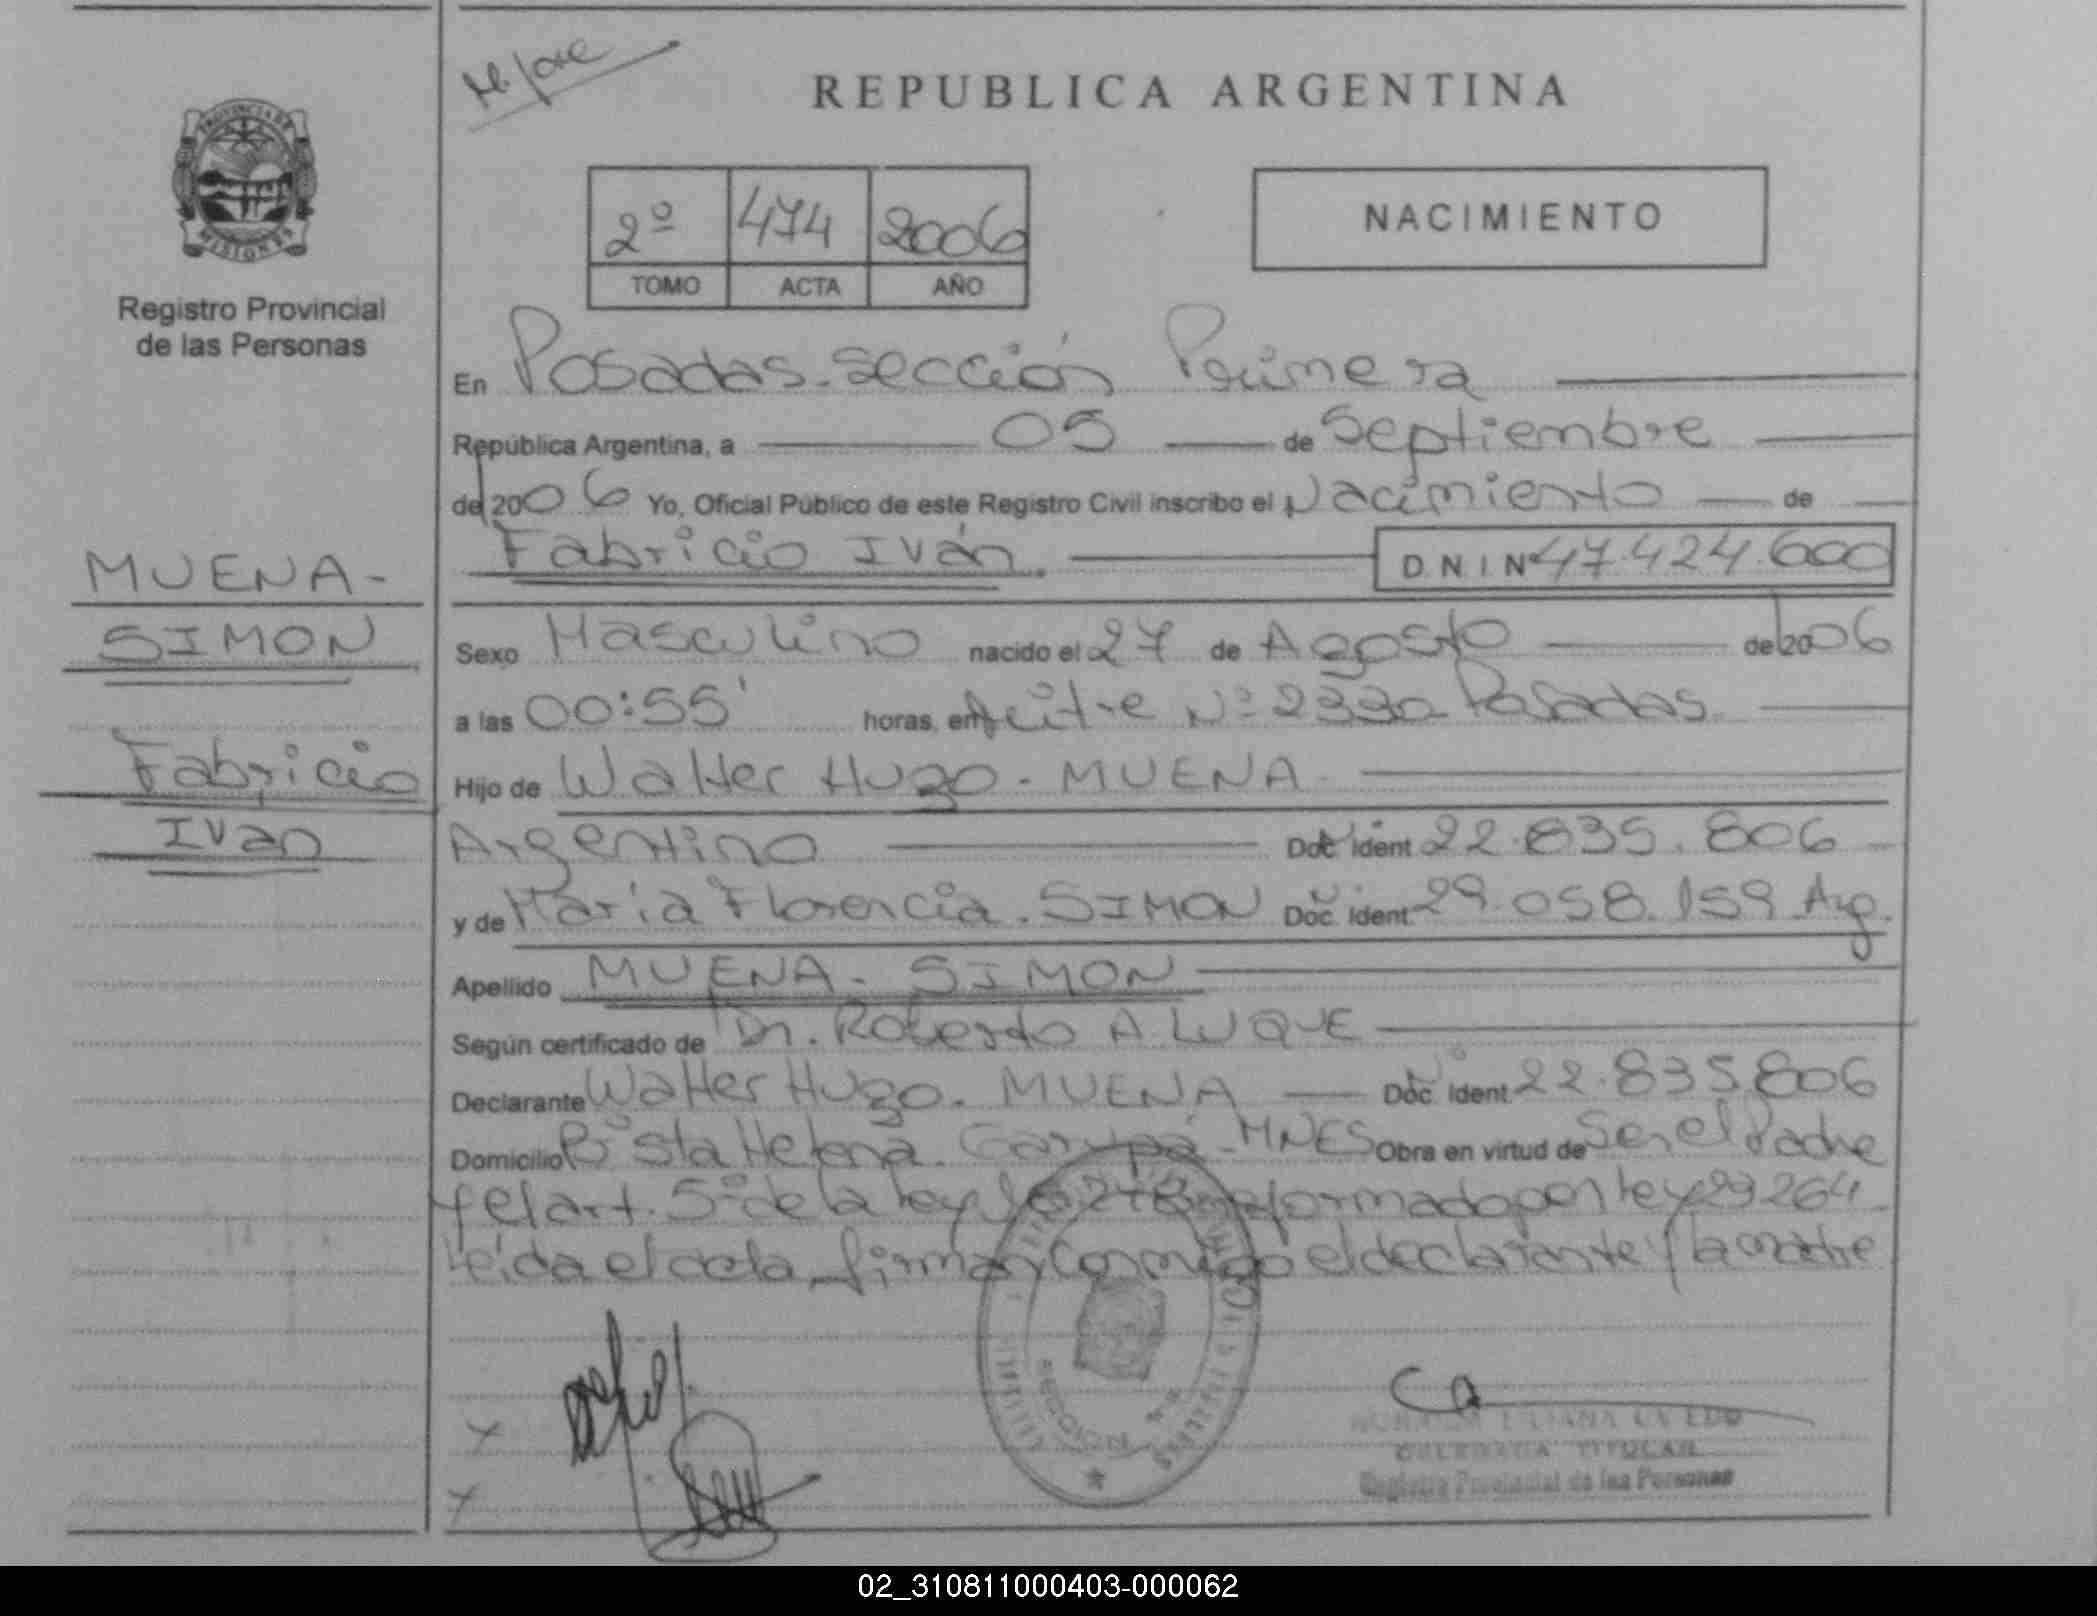 M. Jose
REPUBLICA ARGENTINA
PROVINCIA DE
MISIONES
Registro Provincial
de las Personas
2º 474 2006
TOMO ACTA AÑO
NACIMIENTO
En Posadas. Sección Primera
República Argentina, a 05 de Septiembre
de 2006 Yo, Oficial Público de este Registro Civil inscribo el Nacimiento de
Fabricio Iván. D.N.I. Nº 47.424.600
MUENA-
SIMON
Fabricio
Ivan
Sexo Masculino nacido el 27 de Agosto de 2006
a las 00:55' horas, en Mitre Nº 2330 Posadas.
Hijo de Walter Hugo - MUENA -
Argentino Doc. Ident 22.835.806
y de María Florencia. SIMON Doc. Ident. 29.058.159 Arg.
Apellido MUENA - SIMON
Según certificado de Dr. Roberto A. LUQUE
Declarante Walter Hugo. MUENA Doc. Ident 22.835.806
Domicilio Bº Sta Helena. Garupá - MNES Obra en virtud de Ser el Padre
y el art. 5º de la ley 18248 reformado por ley 23264.
Leída el acta, firman conmigo el declarante y la madre
LILIANA
DELEGADA TITULAR
Registro Provincial de las Personas
02_310811000403-000062